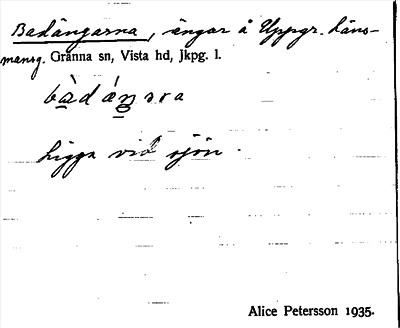 Badängarna, ängar å Uppgr. läns-
mansg. Gränna sn, Vista hd, Jkpg. l.
bàdáŋara
Ligga vid sjön.
Alice Petersson 1935.